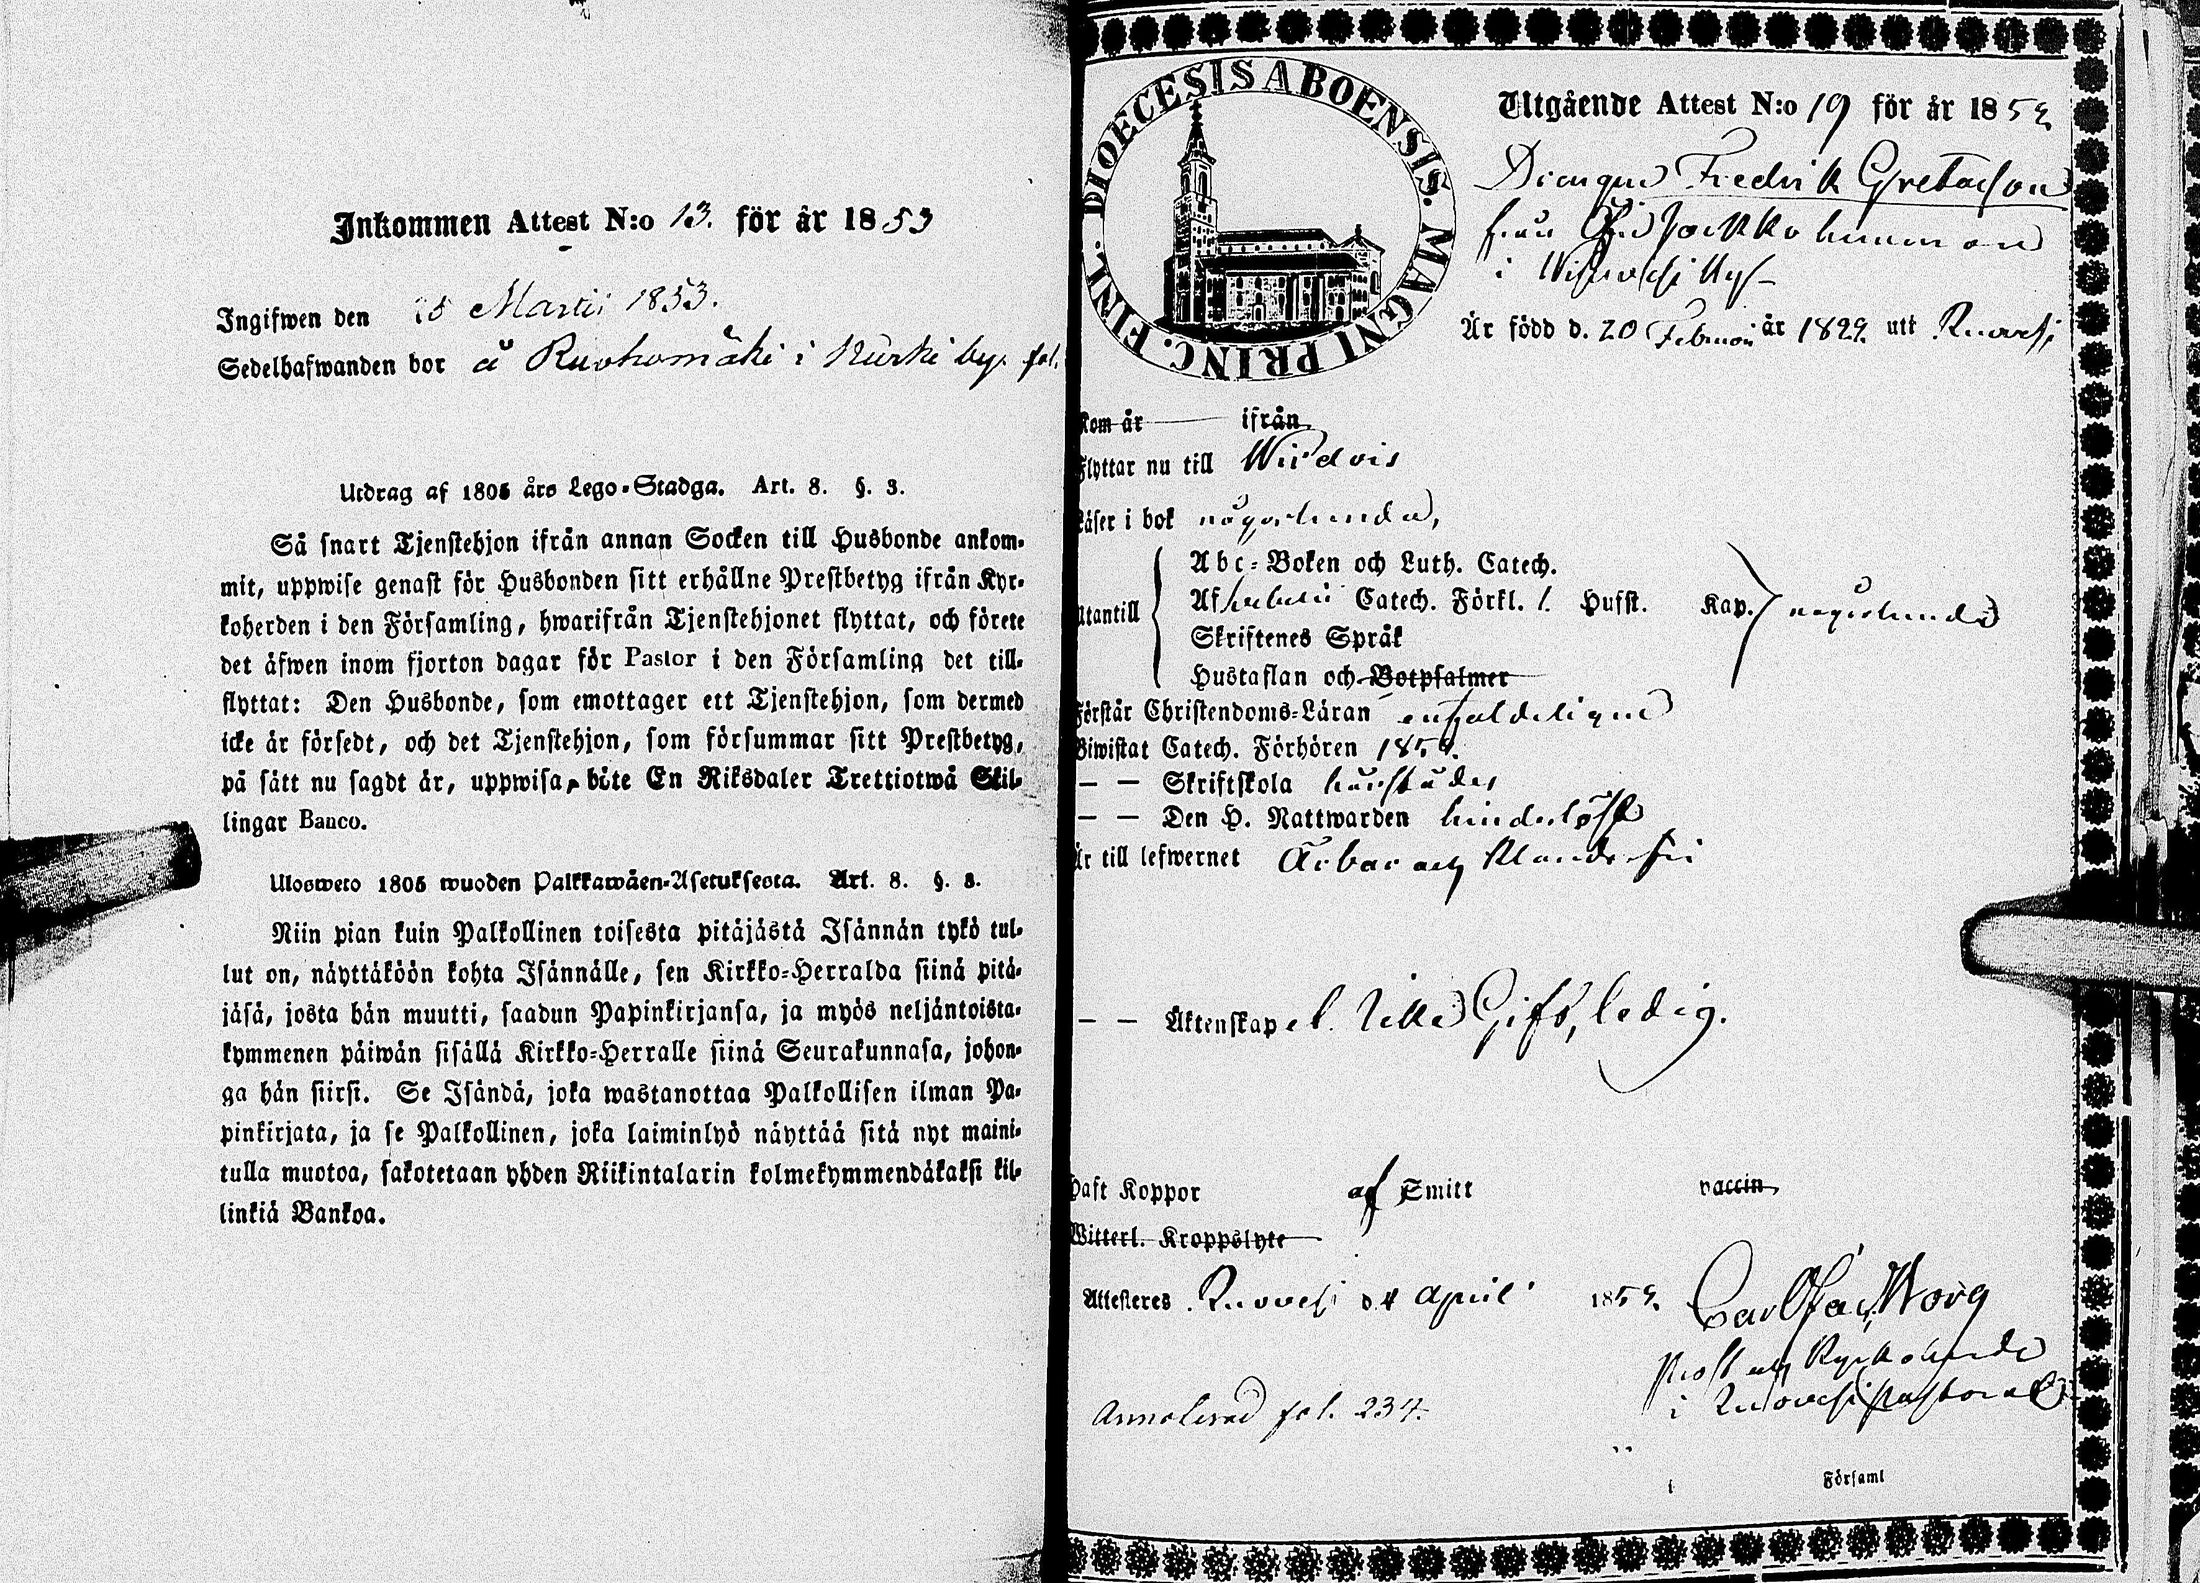 Inkommen Attest N:o 13. för år 1853
Ingifwen den Martii 1853.
Sedelhafwanden bor å Ruohomäki i Kurki by. fol.
Utdrag af 1805 års Lego-Stadga. Art. 8. §. 3.
Så snart Tjenstehjon ifrån annan Socken till Husbonde ankom-
mit, uppwise genast för Husbonden sitt erhållne Prestbetyg ifrån Kyr-
koherden i den Församling, hwarifrån Tjenstehjonet flyttat, och förete
det äfwen inom fjorton dagar för Pastor i den Församling det till-
flyttat: Den Husbonde, som emottager ett Tjenstehjon, som dermed
icke är försedt, och det Tjenstehjon, som försummar sitt Prestbetyg,
på sätt nu sagdt är, uppwisa, böte En Riksdaler Trettiotwå Skil-
lingar Banco.
Ulosweto 1805 wuoden Palkkawäen-Asetuksesta. Art. 8. §. 3.
Niin pian kuin Palkollinen toisesta pitäjästä Isännän tykö tul-
lut on, näyttäköön kohta Isännälle, sen Kirkko-Herralda siinä pitä-
jäsä, josta hän muutti, saadun Papinkirjansa, ja myös neljäntoista-
kymmenen päiwän sisällä Kirkko-Herralle siinä Seurakunnasa, johon-
ga hän siirsi. Se Isändä, joka wastanottaa Palkollisen ilman Pa-
pinkirjata, ja se Palkollinen, joka laiminlyö näyttää sitä nyt maini-
tulla muotoa, sakotetaan yhden Riikintalarin kolmekymmendäkaksi kil-
linkiä Bankoa.
DIOECESIS ABOENSIS. MAGNI PRINC. FINL.
Utgående Attest N:o 19 för år 1853
Drengen Fredrik Gretasson
från
i by
Är född d. 20 Februari år 1829 utt Ruovesi
Kom år ifrån
Flyttar nu till Wirdois
Läser i bok någorlunda,
Utantill
Abc-Boken och Luth. Catech.
Af Catech. Förkl. Hufst. Kap. någorlunda
Skriftenes Språk
Hustaflan och Botpsalmer
Förstår Christendoms-Läran enfaldeligen
Biwistat Catech. Förhören 185
— — Skriftskola
— — Den H. Nattwarden
Är till lefwernet Ärbar och
— — Äktenskap el. Icke Gift, ledig.
Haft Koppor af Smitt vaccin
Witterl. Kroppslyte
Attesteres Ruovesi d. 4 April 1853.
Borg
Prost och Kyrkoherde
i Ruovesi Pastorat
Annoterad fol. 234.
Församl